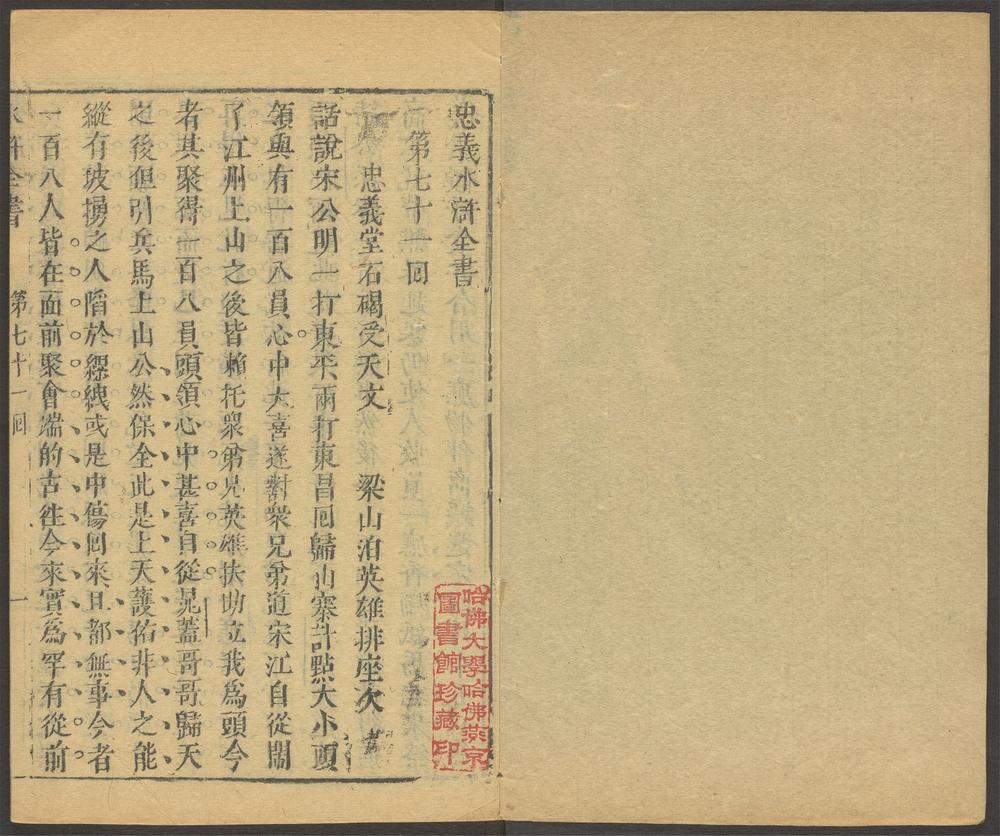 忠義水滸全書
第七十一囘
忠義堂石碣受天文 梁山泊英雄排座次
話說宋公明一打東平兩打東昌囘歸山寨計點大小頭
領與有一百八員心中大喜遂對衆兄弟道宋江自從閙
了江州上山之後皆賴托衆弟兄英雄扶助立我爲頭今
者其聚得一百八員頭領心中甚喜自從晁蓋哥哥歸天
之後但引兵馬上山公然保全此是上天護佑非人之能
縱有被擄之人陷於縲絏或是中傷囘來且都無事今者
一百八人皆在面前聚會端的古徃今來實爲罕有從前
水滸全書 第七十一囘 一
哈佛大學哈佛燕京
圖書館珍藏印